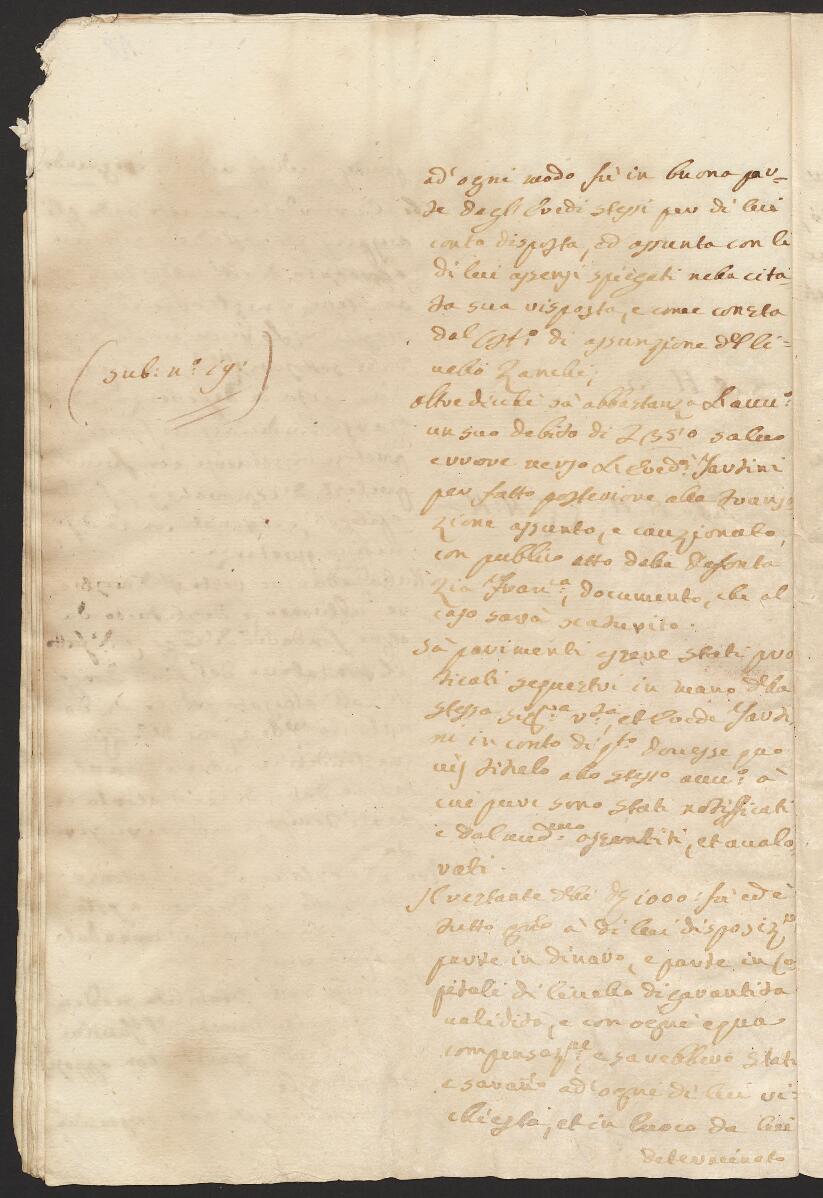 ad' ogni modo fù in buona par-
te dagl'Eredi stessi per di lui
conto disposta, ed assunta con li
di lui assensi spiegati nella cita-
ta sua risposta, e come consta
dal Ist.º di assunzione del li-
vello Zanchi;
(sub: nº 19:)
oltre di che sà abbastanza
un suo debito di salvo
errore verso Eredi
per fatto posteriore alla transa-
zione assunto, e cauzionato,
con publico atto dalla defonta
Zia documento, che al
caso sarà scaturito.
Sà parimenti essere stati pra
ticati sequestri in mano della
stessa et Eredi
ni in conto di
titolo allo stesso à
cui pure sono stati notifficati
e dal med.mo assentiti, et avalo-
rati.
Il restante delli 1000: fù ed è
tutto à di lui disposiz.ne
parte in dinaro, e parte in Ca-
pitali di livello di garantita
validità, e con ogni equa
compensaz.ne, e sarebbero stati
e saranno ad' ogni di lui ri-
chiesta, et in luoco da lui
determinato